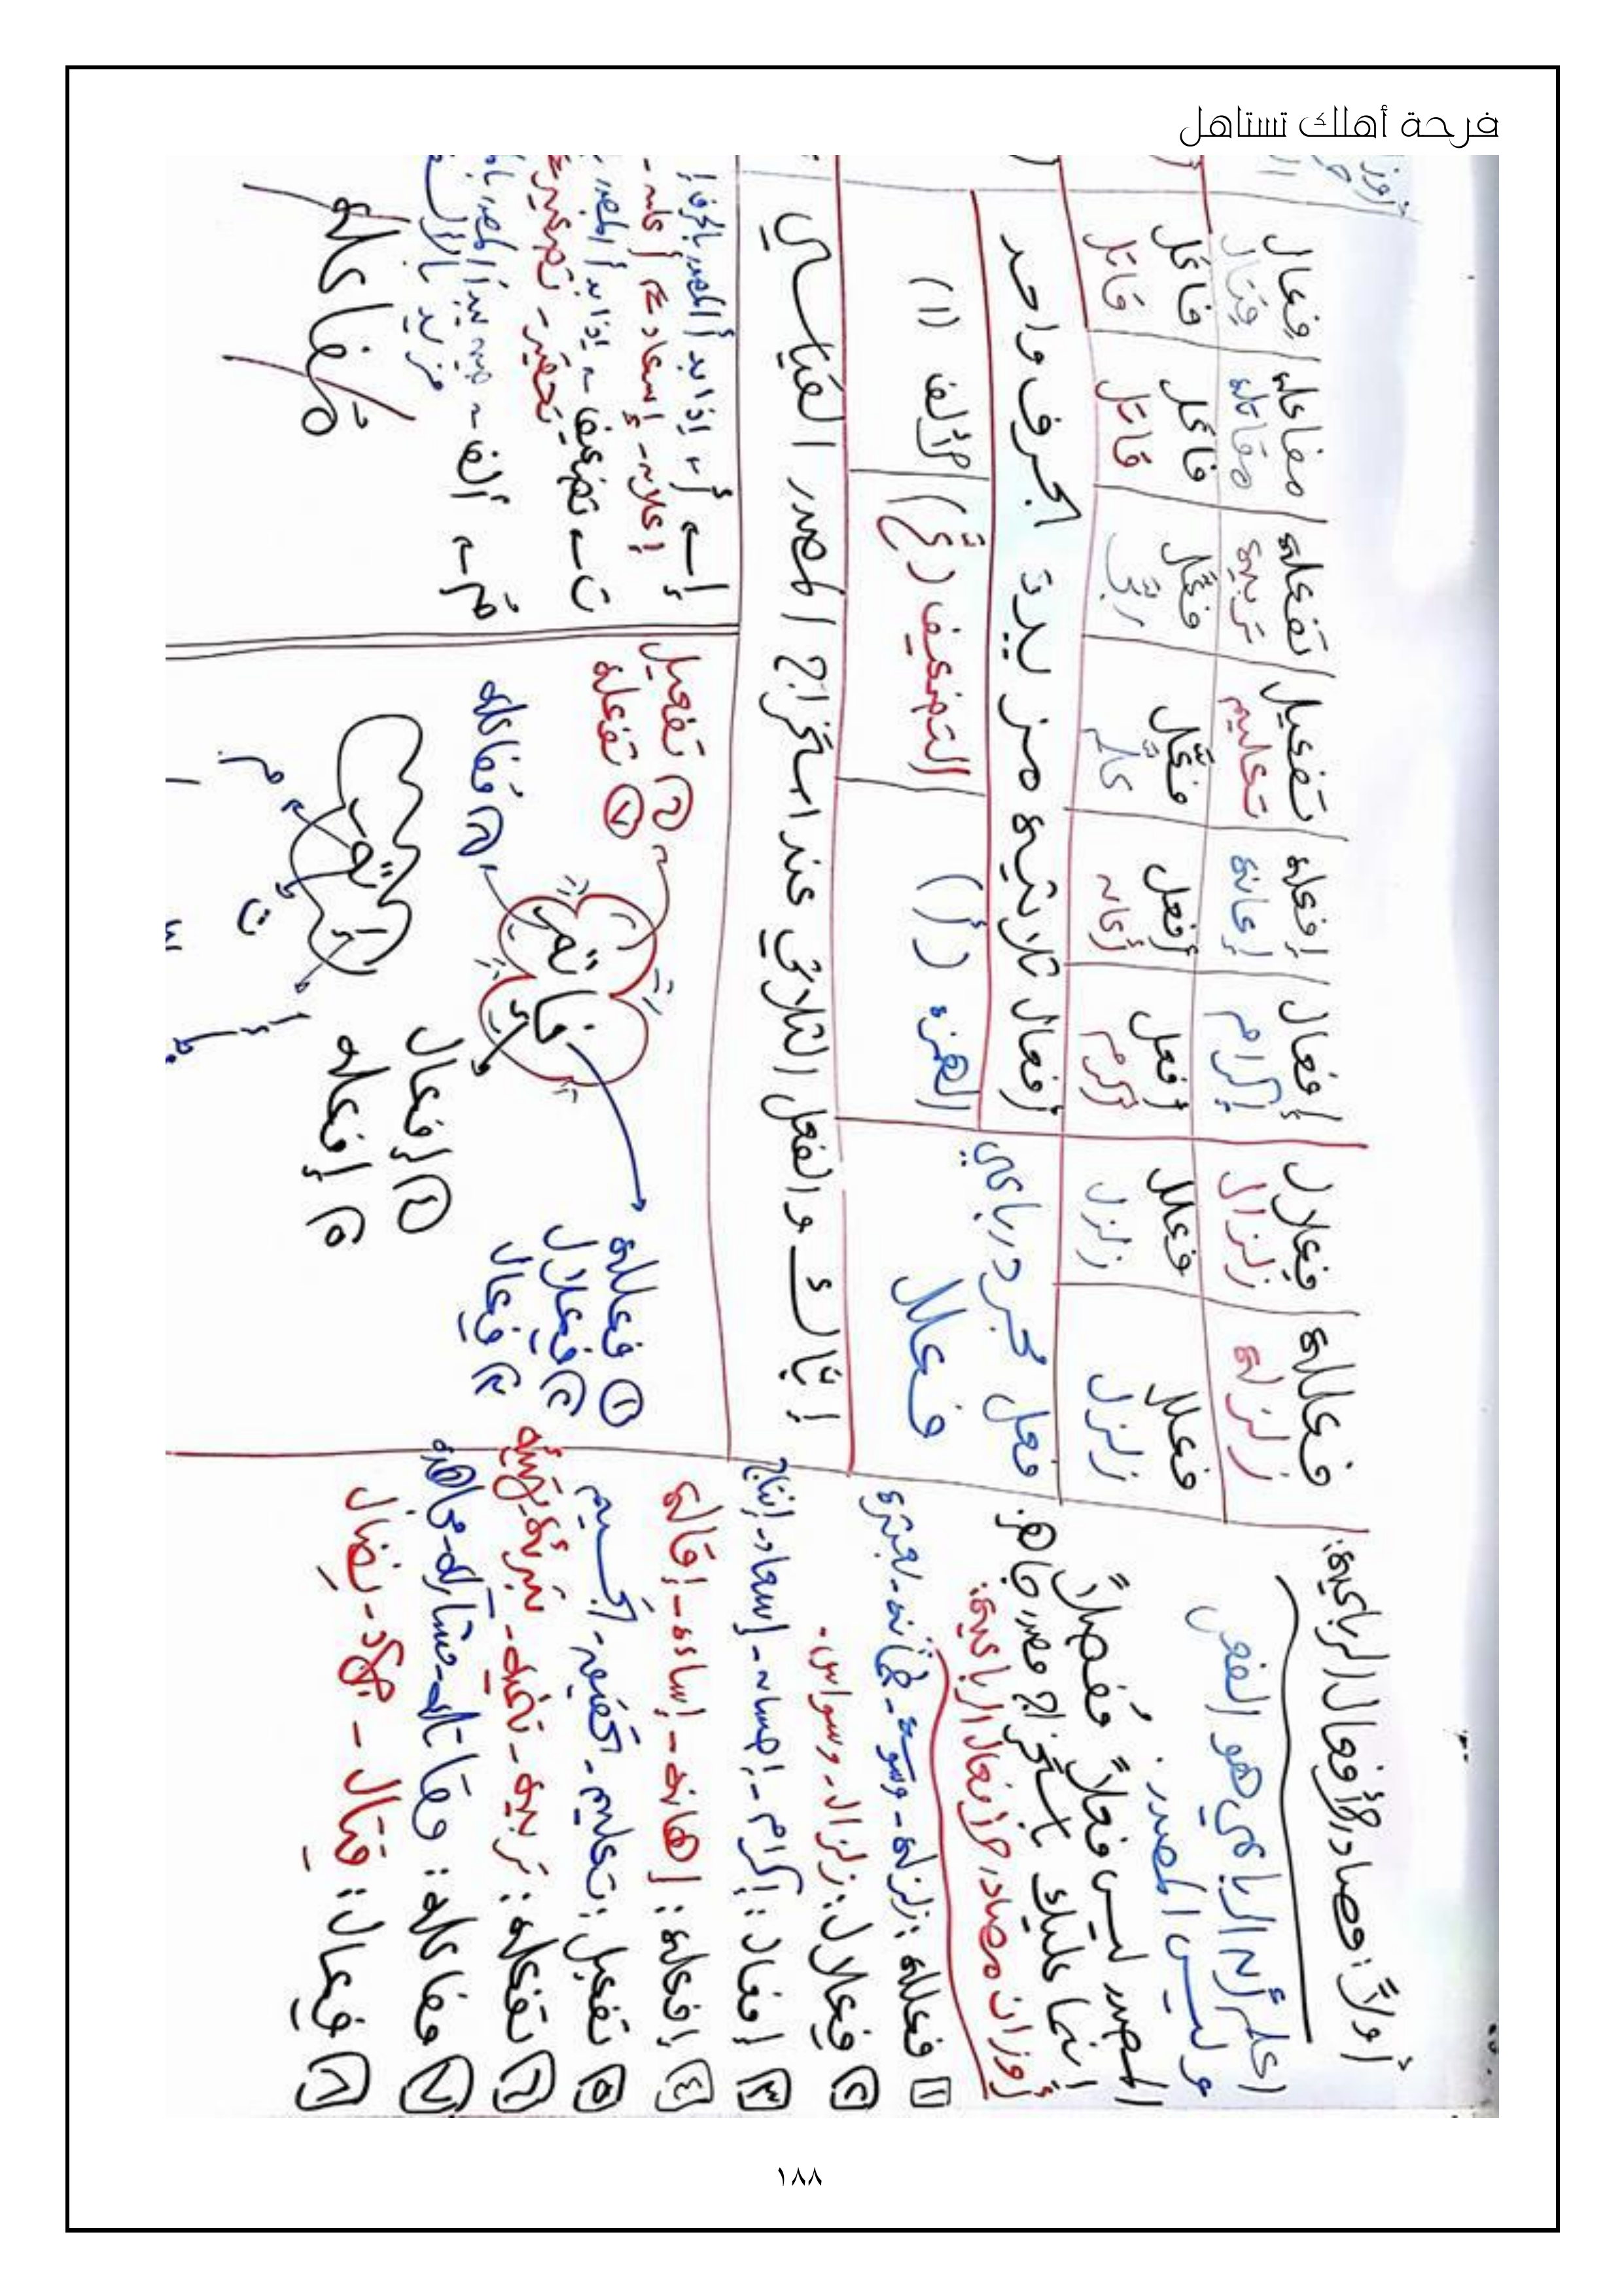 فرحة أهلك تستاهل
أولاً: مصادر الأفعال الرباعية:
اعلم أن الرباعي هو الفعل
وليس المصدر.
المصدر ليس فعلاً مُفصلاً
إنما عليك باستخراج مصدر جاهز.
أوزان مصادر الأفعال الرباعية:
١ فعللة: زلزلة - وسوسة - طمأنة - بعثرة
٢ فِعلال: زلزال - وسواس.
٣ إفعال: إكرام - إحسان - إسعاد - إنتاج
٤ إفعلة: إهانة - إساءة - إقالة
٥ تفعيل: تعليم - تحضير - تجسيم
٦ تفعلة: تربية - تخلية - تبرئة
٧ مفاعلة: مقاتلة - مشاركة - مجاهدة
٨ فِعال: قِتال - جهاد - نِضال
فعللة فِعلال إفعال إفعلة تفعيل تفعلة مفاعلة فِعال
زلزلة زلزال إكرام إعانة تعليم تربية مقاتلة قتال
فعلل فعلل أفعل أفعل فعّل فعّل فاعل فاعل
زلزل زلزل أكرم أعان علّم ربّى قاتل قاتل
فعل مجرد رباعي
فعلل
أفعال ثلاثية مزيدة بحرف واحد
الهمزة (أ) التضعيف (ـّ) الألف (ا)
إيّاك والفعل الثلاثي عند استخراج المصدر القياسي
١ فعللة
٢ فِعلال
٣ فِعال
٤ إفعال
٥ إفعلة
٦ تفعيل
٧ تفعلة
٨ مُفاعلة
إ ← أ ← إذا بدأ المصدر
ت ← تضعيف ← إذا بدأ المصدر
مُ ← ألف
مُفاعلة
١٨٨